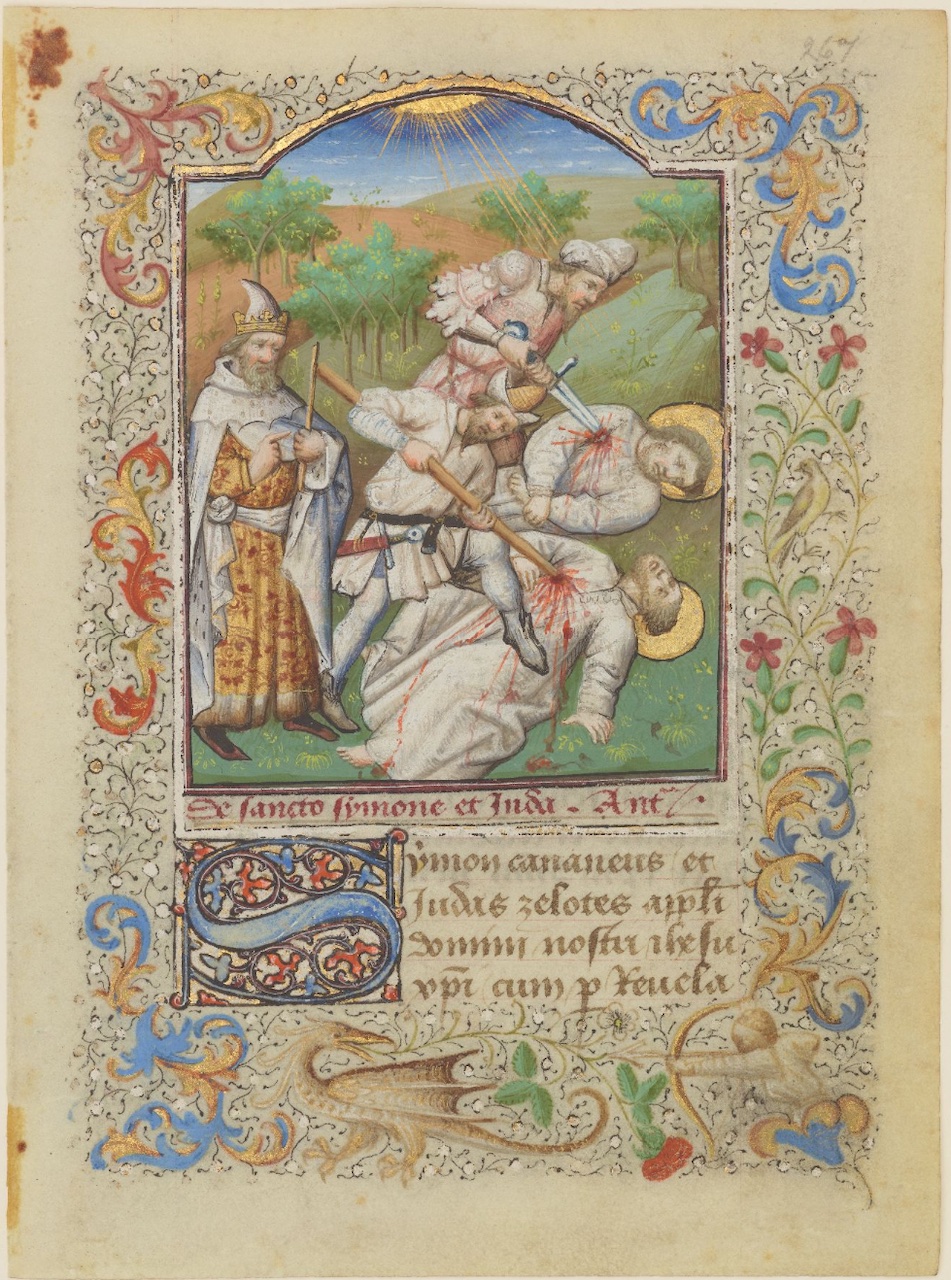 267
De sancto symone et Iuda. Antᵃ.
Symon cananeus et
Iudas zelotes appl̃i
domini nostri ihesu
xp̃i cum p Reuela